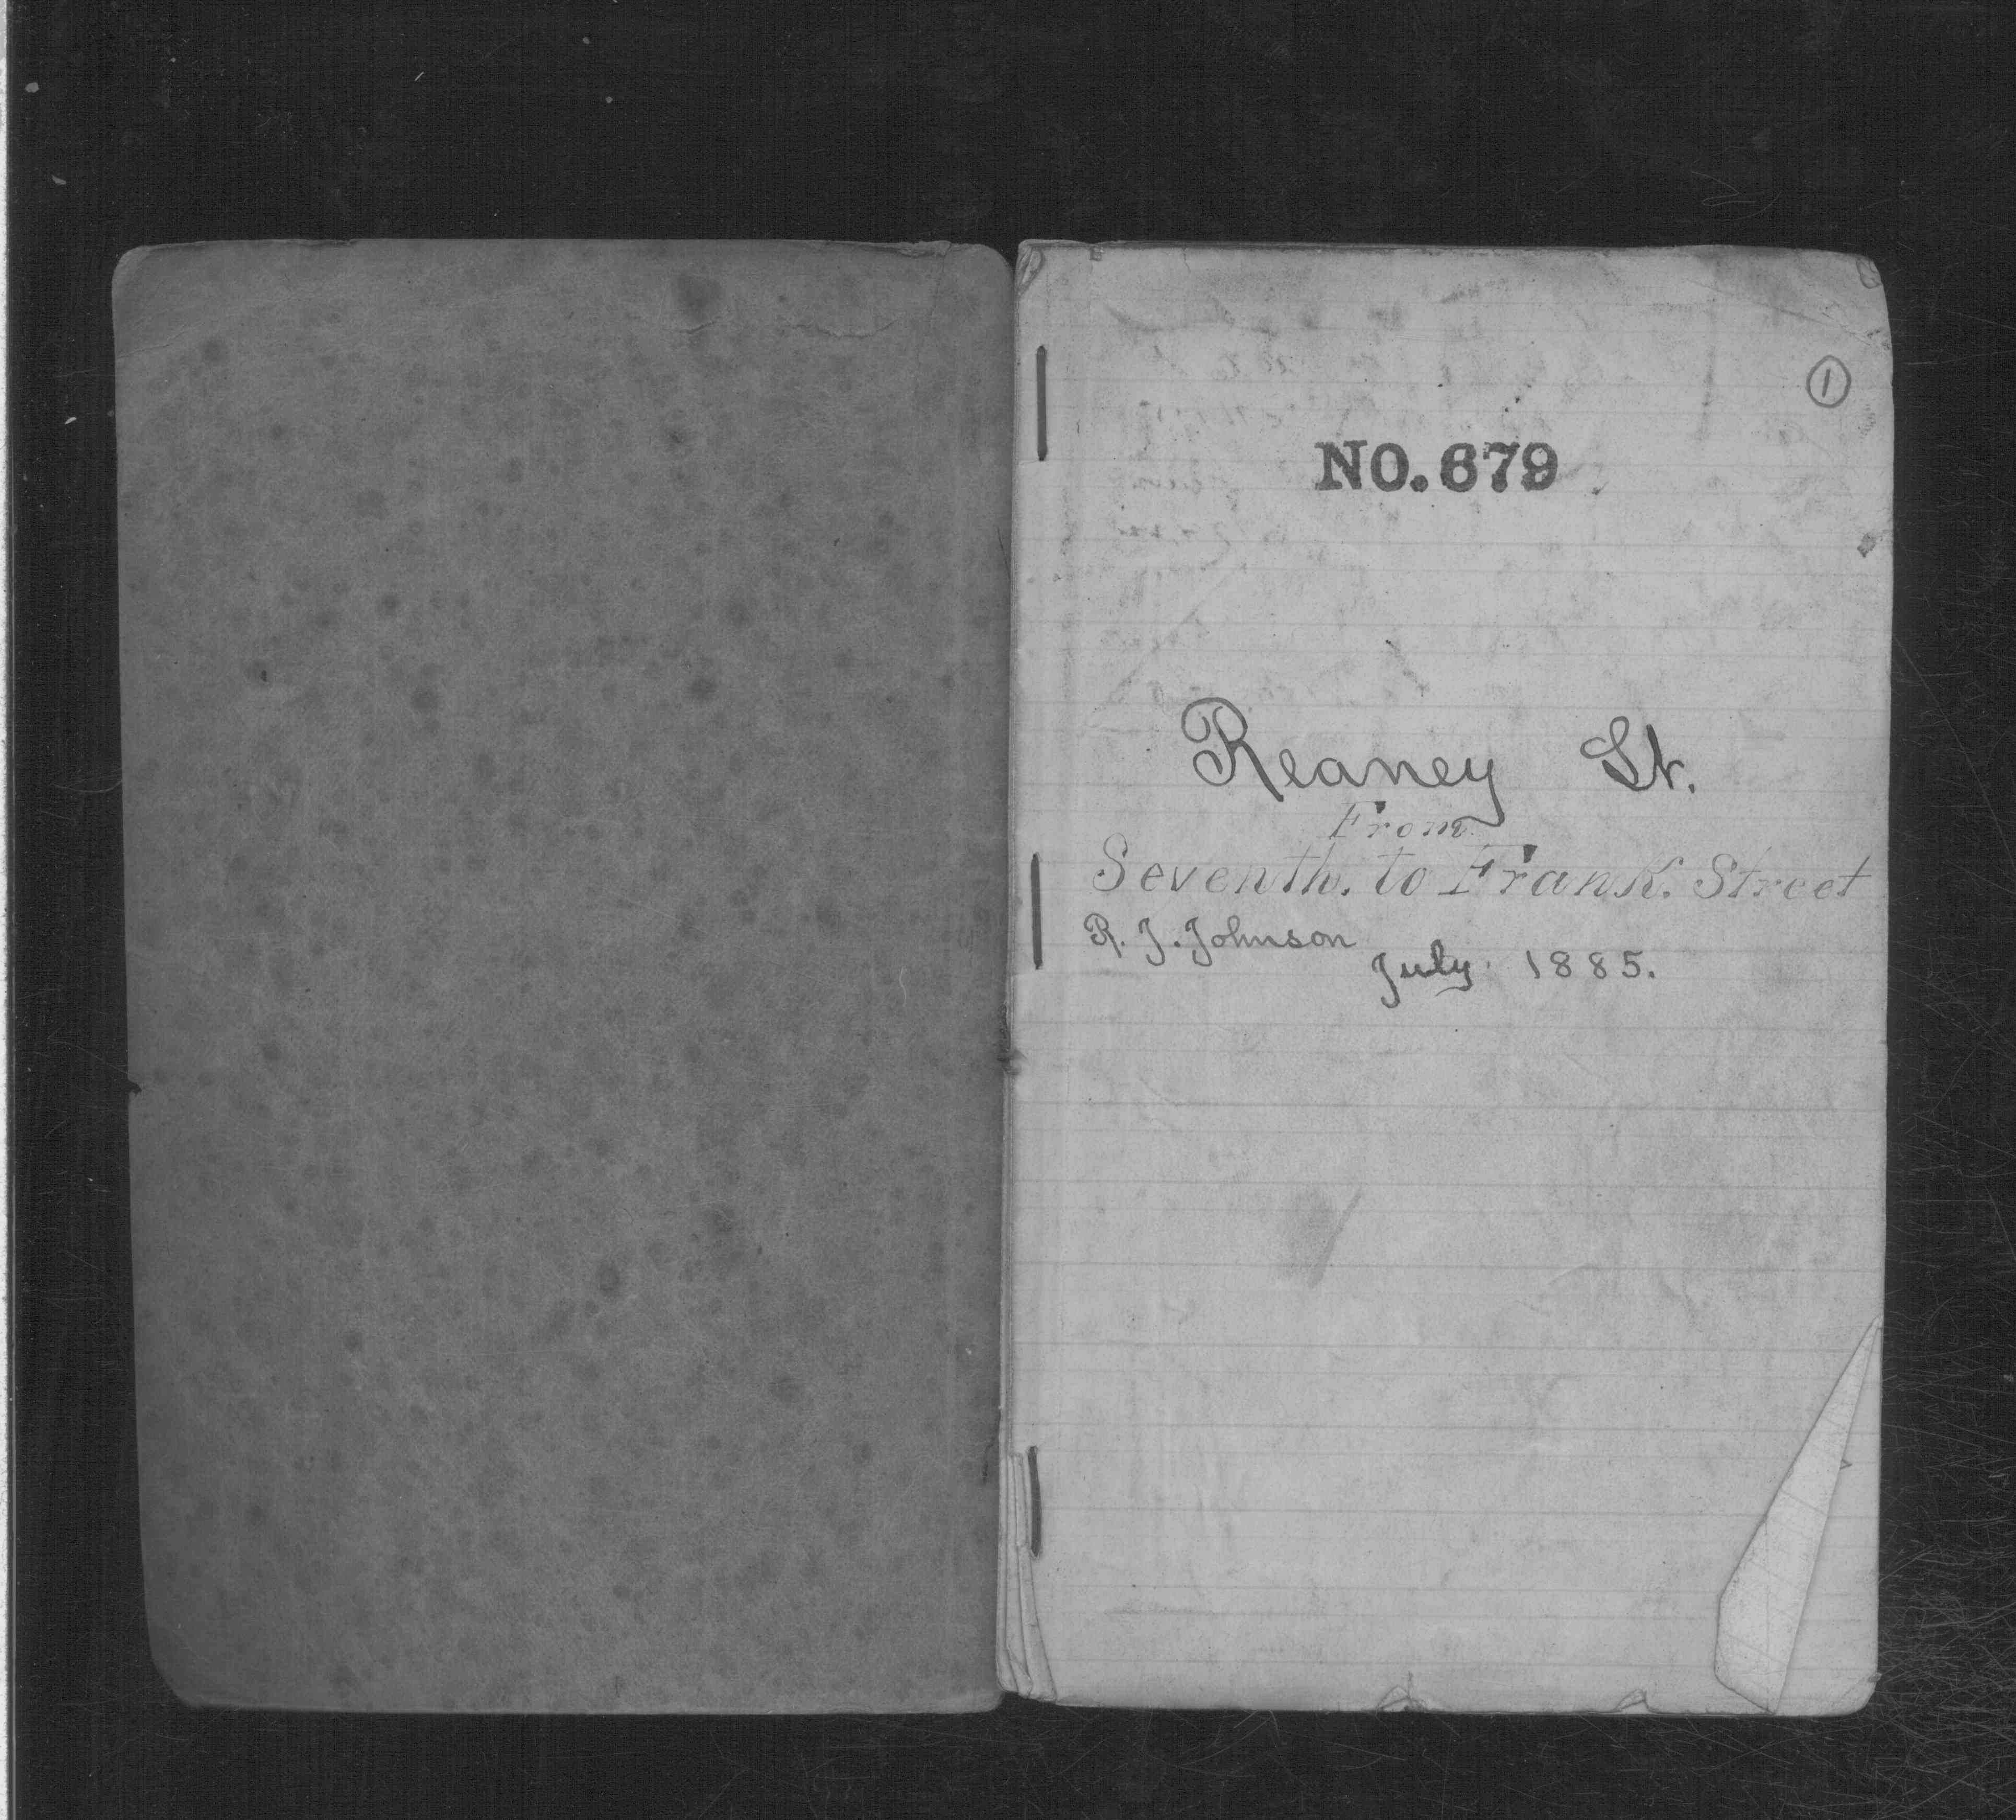 1
NO. 679
Reaney St.
From
Seventh. to Frank. Street
R. J. Johnson
July. 1885.